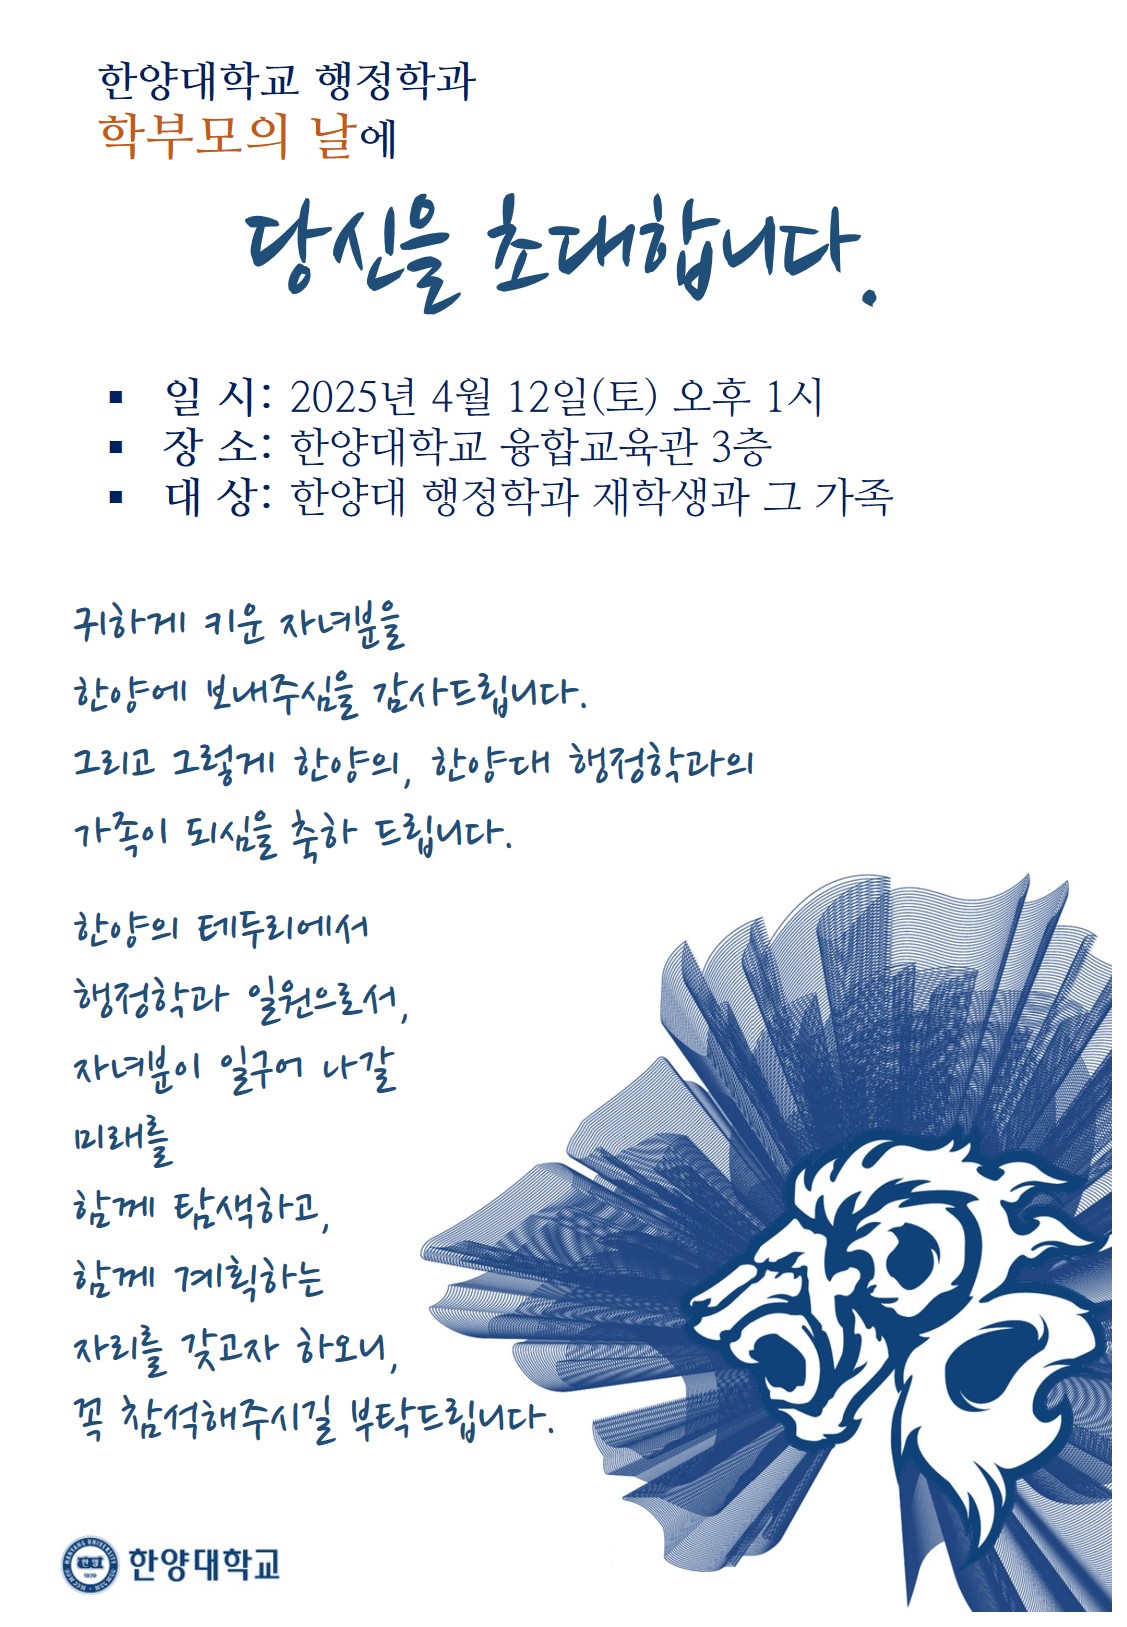 한양대학교 행정학과
학부모의 날에
당신을 초대합니다.
▪ 일 시: 2025년 4월 12일(토) 오후 1시
▪ 장 소: 한양대학교 융합교육관 3층
▪ 대 상: 한양대 행정학과 재학생과 그 가족
귀하게 키운 자녀분을
한양에 보내주심을 감사드립니다.
그리고 그렇게 한양의, 한양대 행정학과의
가족이 되심을 축하 드립니다.
한양의 테두리에서
행정학과 일원으로서,
자녀분이 일구어 나갈
미래를
함께 탐색하고,
함께 계획하는
자리를 갖고자 하오니,
꼭 참석해주시길 부탁드립니다.
HANYANG UNIVERSITY
한양
1939
한양대학교